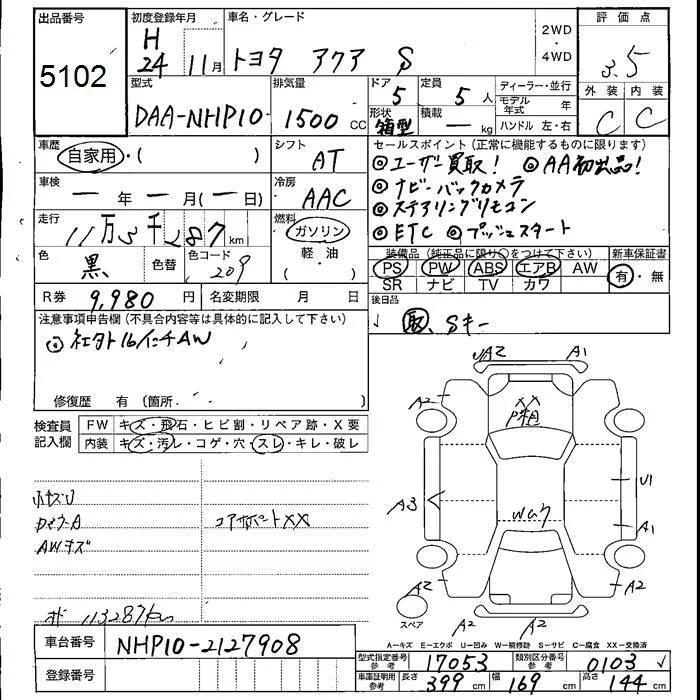 出品番号
5102
初度登録年月
H 24 11月
車名・グレード
トヨタ アクア S
2WD ・ 4WD
評価点
3.5
型式
DAA-NHP10
排気量
1500 CC
ドア
5
定員
5人
形状
箱型
積載
ー kg
ディーラー・並行
モデル年式 年
ハンドル 左・右
外装 内装
C C
車歴
自家用・( )
シフト
AT
セールスポイント(正常に機能するものに限ります)
◎ユーザー買取! ◎AA初出品!
◎ナビーバックカメラ
◎ステアリングリモコン
◎ETC ◎プッシュスタート
車検
ー年ー月(ー日)
冷房
AAC
走行
11万3千287km
燃料
ガソリン
軽・油
( )
色
黒
色替
色コード
209
装備品(純正品に限り○をつけて下さい)
PS PW ABS エアB AW
SR ナビ TV カワ
新車保証書
有・無
R券 9,980円
名変期限 月 日
後日品
取、Sキー
注意事項申告欄(不具合内容等は具体的に記入して下さい)
◎社外16インチAW
修復歴 有(箇所. )
検査員記入欄
FW キズ・飛石・ヒビ割・リペア跡・X要
内装 キズ・汚レ・コゲ・穴・スレ・キレ・破レ
小キズU
AWキズ
コアサポートXX
オド 113287km
UA2 A1
A2 A2
XX
A3
U1
A1
A2 A2
A2 A2
スペア
A-キズ E-エクボ U-凹み W-補修跡 S-サビ C-腐食 XX-交換済
車台番号 NHP10-2127908
登録番号
型式指定番号 参考 17053
類別区分番号 参考 0103
車庫証明用 参考 長さ 399cm 幅 169cm 高さ 144cm